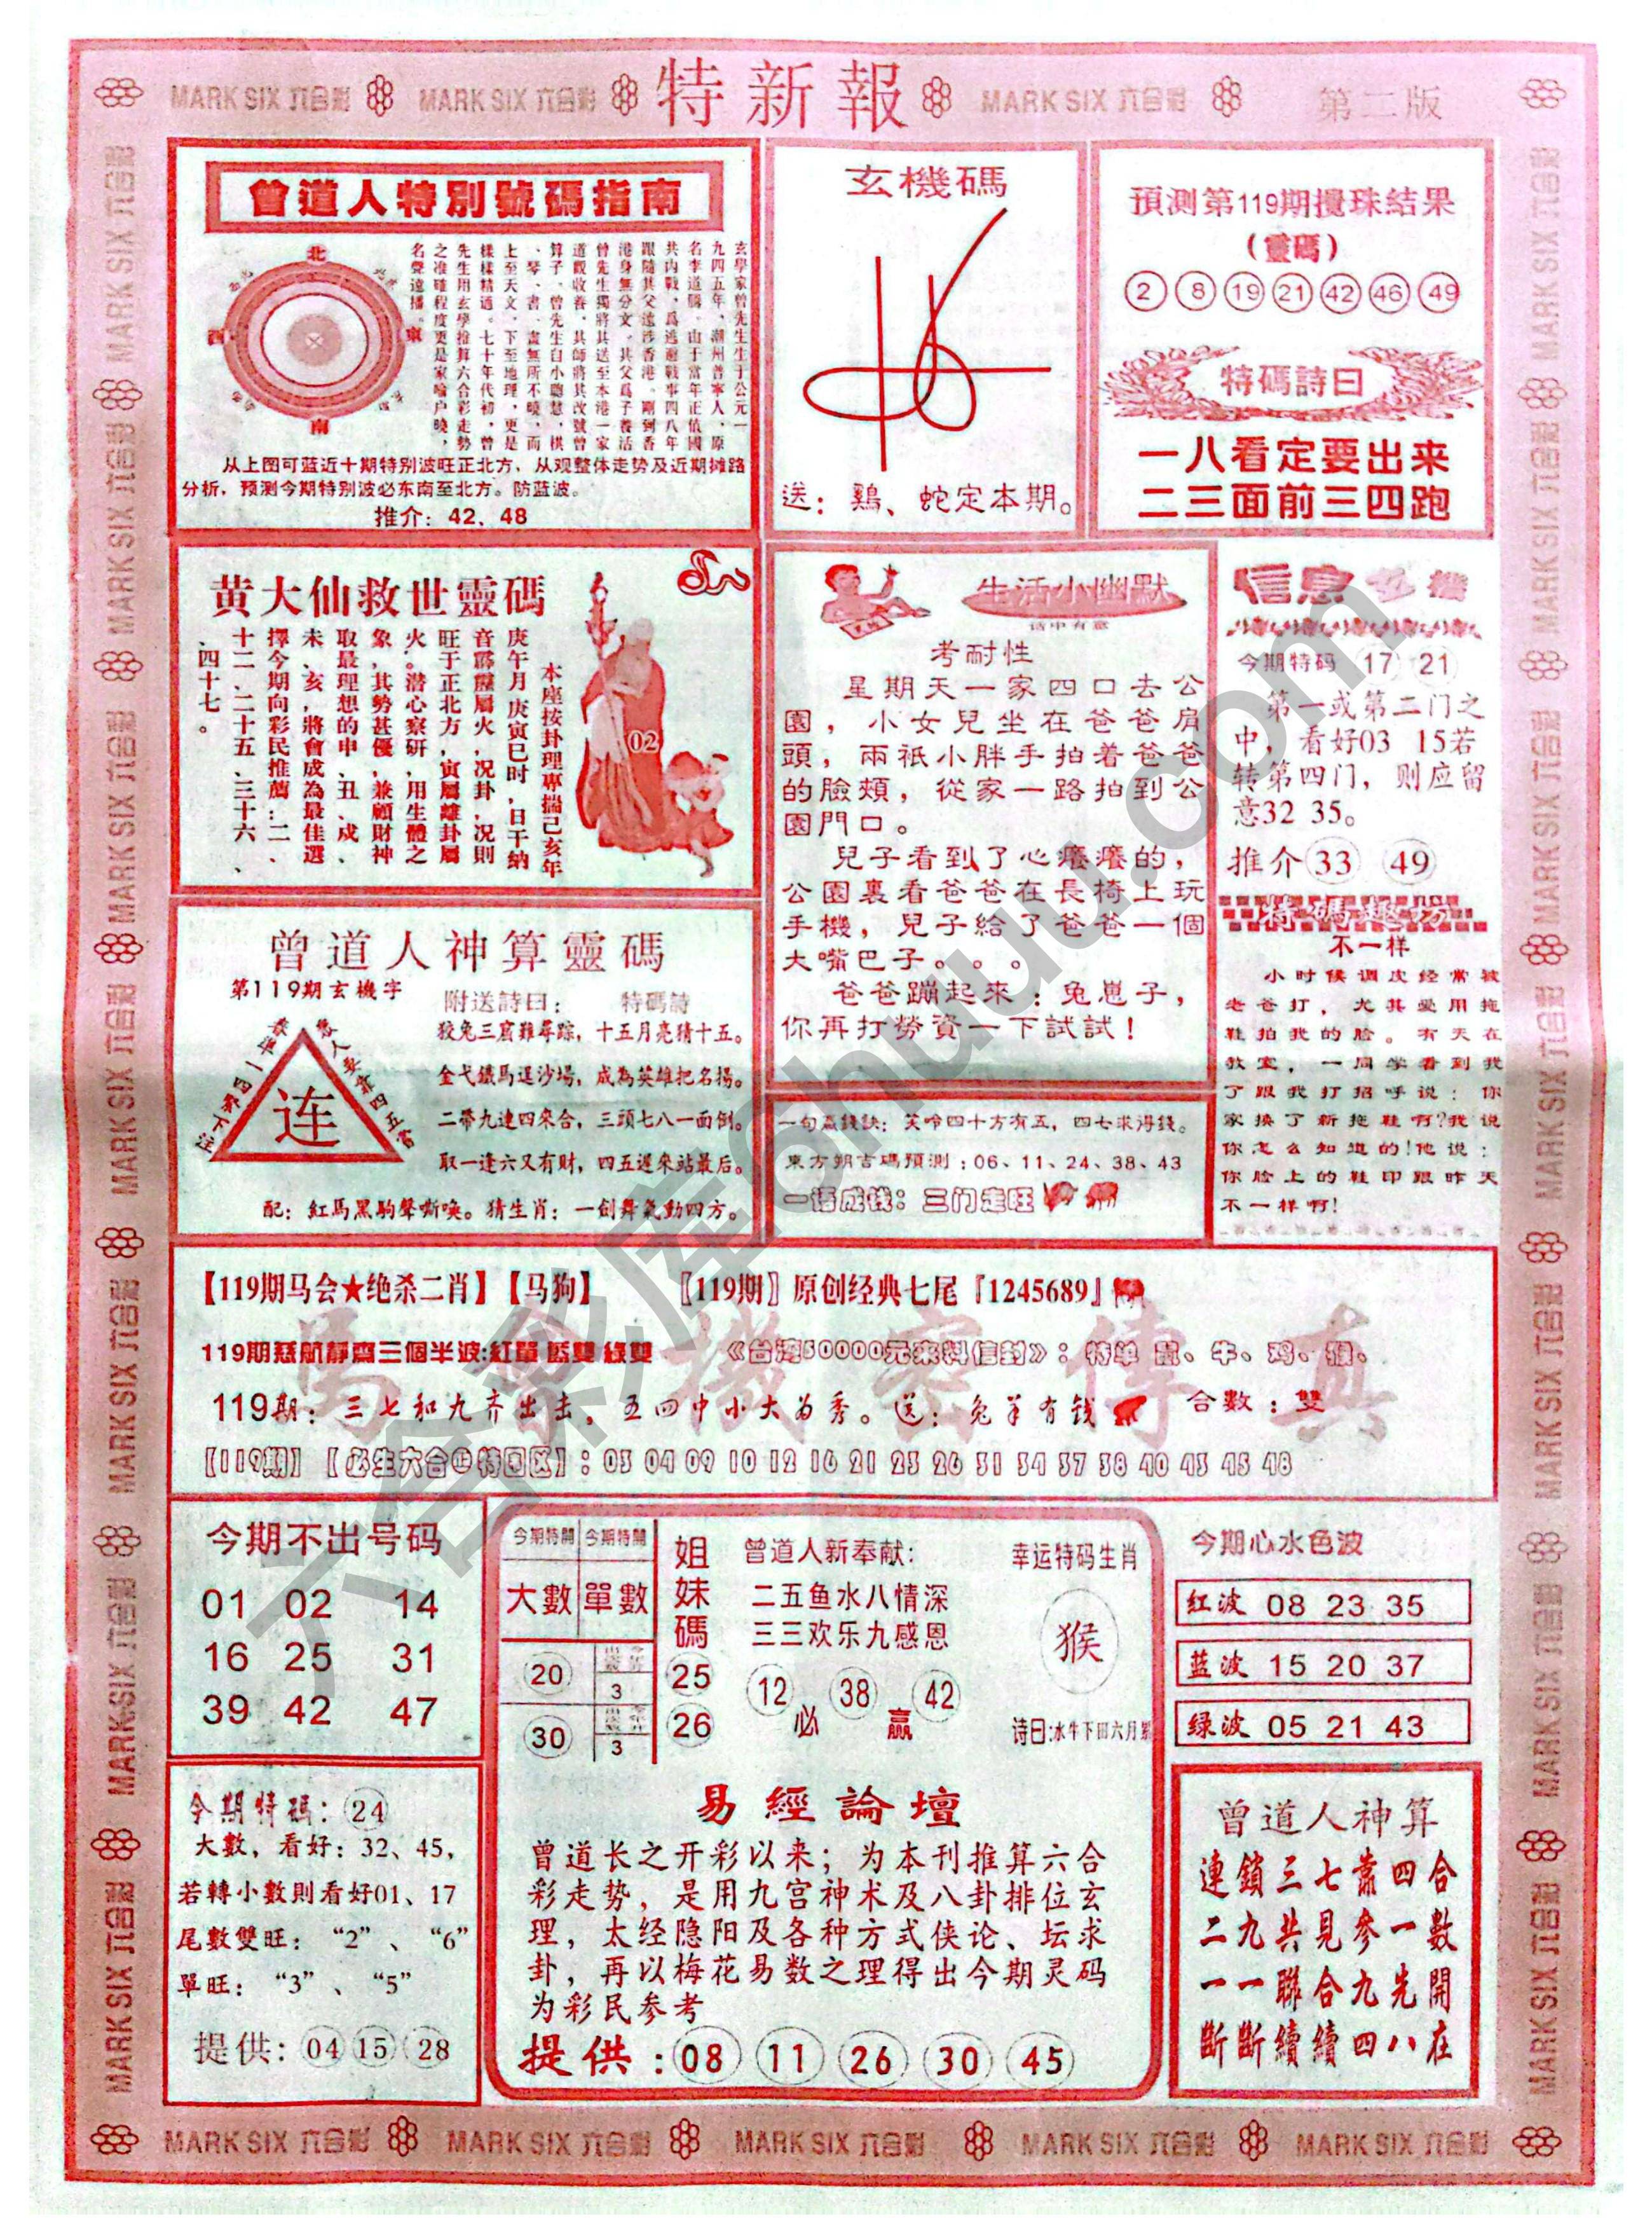 MARK SIX 六合彩
MARK SIX 六合彩
特新報
MARK SIX 六合彩
第二版
曾道人特別號碼指南
北
西
東
南
玄學家曾先生生于公元一
九四五年，潮州普寧人，原
名李道勝。由于當年正值國
共内戰，爲逃避戰事四八年
跟隨其父遠涉香港。剛到香
港身無分文，其父爲子養活
曾先生獨將其送至本港一家
道觀收養，其師將其改號曾
算子。曾先生自小聰慧，棋
、琴、書、畫無所不曉，而
上至天文，下至地理，更是
樣樣精通。七十年代初，曾
先生用玄學推算六合彩走勢
之准確程度更是家喻户曉，
名聲遠播。
从上图可蓝近十期特别波旺正北方，从观整体走势及近期摊路
分析，预测今期特别波必东南至北方。防蓝波。
推介：42、48
玄機碼
送：鷄、蛇定本期。
預測第119期攪珠結果
（靈碼）
2 8 19 21 42 46 49
特碼詩曰
一八看定要出來
二三面前三四跑
黄大仙救世靈碼
本座按卦理專揣己亥年
庚午月庚寅巳时，日干納
音霹靂屬火，况卦，况則
旺于正北方，寅屬離卦屬
火。潜心察研，用生體之
象，其勢甚優，兼顧財神
取最理想的申、丑、戌、
未、亥，將會成為最佳選
擇今期向彩民推薦：二、
十二、二十五、三十六、
、四十七。
02
生活小幽默
话中有意
考耐性
星期天一家四口去公
園，小女兒坐在爸爸肩
頭，兩祇小胖手拍着爸爸
的臉頰，從家一路拍到公
園門口。
兒子看到了心癢癢的，
公園裏看爸爸在長椅上玩
手機，兒子給了爸爸一個
大嘴巴子。。。
爸爸蹦起來：兔崽子，
你再打勞資一下試試！
信息玄機
今期特码 17 21
第一或第二门之
中，看好03 15若
转第四门，则应留
意32 35。
推介33 49
特碼趣坊
不一样
小时候调皮经常被
老爸打，尤其爱用拖
鞋拍我的脸。有天在
教室，一同学看到我
了跟我打招呼说：你
家换了新拖鞋啊?我说
你怎么知道的!他说：
你脸上的鞋印跟昨天
不一样啊!
曾道人神算靈碼
第119期玄機字
连
附送詩曰： 特碼詩
狡兔三窟難尋踪，十五月亮猜十五。
金戈鐵馬逞沙場，成為英雄把名揚。
二帶九連四來合，三頭七八一面倒。
取一逢六又有財，四五遲來站最后。
配：紅馬黑駒聲嘶唤。猜生肖：一劍舞氣動四方。
一句贏錢訣：笑吟四十方有五，四七求得錢。
東方朔吉碼預測：06、11、24、38、43
一语成钱：三门走旺
【119期马会★绝杀二肖】【马狗】
〖119期〗原创经典七尾『1245689』
馬會機密傳真
119期慈航靜齋三個半波:紅單 藍雙 綠雙
《台湾50000元来料信封》：特单 鼠、牛、鸡、猴、
119期：三七和九齐出击，五四中小大为秀。送：兔羊有钱
合數：雙
【119期】【必生六合㊣特围区】:03 04 09 10 12 16 21 23 26 31 34 37 38 40 43 45 48
今期不出号码
01 02 14
16 25 31
39 42 47
今期特開 今期特開
大數 單數
20
3
30
3
姐妹碼
25
26
曾道人新奉献：
二五鱼水八情深
三三欢乐九感恩
12 38 42
必 赢
幸运特码生肖
猴
诗曰:水牛下田六月累
今期心水色波
红波 08 23 35
蓝波 15 20 37
绿波 05 21 43
今期特碼：24
大數，看好：32、45，
若轉小數則看好01、17
尾數雙旺：“2”、“6”
單旺：“3”、“5”
提供：04 15 28
易經論壇
曾道长之开彩以来；为本刊推算六合
彩走势，是用九宫神术及八卦排位玄
理，太经隐阳及各种方式侠论、坛求
卦，再以梅花易数之理得出今期灵码
为彩民参考
提供：08 11 26 30 45
曾道人神算
連鎖三七肅四合
二九共見參一數
一一聯合九先開
斷斷續續四八在
MARK SIX 六合彩
MARK SIX 六合彩
MARK SIX 六合彩
MARK SIX 六合彩
MARK SIX 六合彩
六合彩库6huu.com